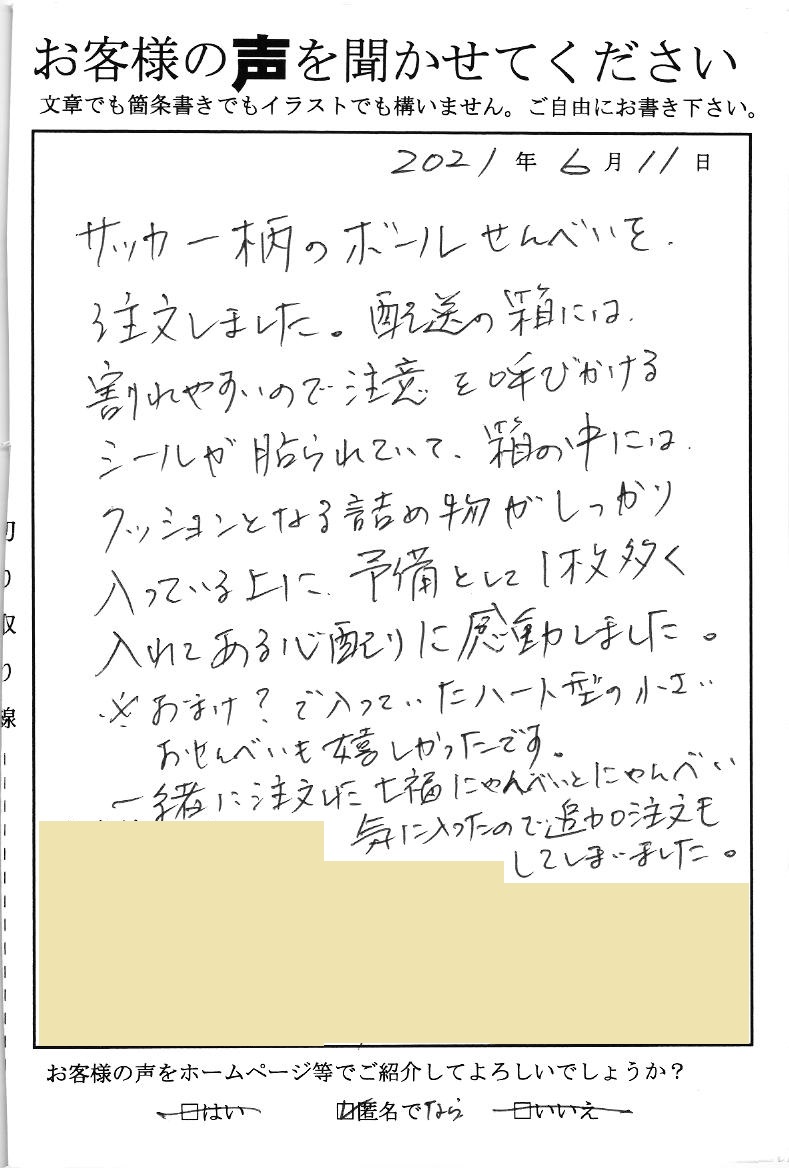 お客様の声を聞かせてください
文章でも箇条書きでもイラストでも構いません。ご自由にお書き下さい。
2021年6月11日
サッカー柄のボールせんべいを
注文しました。配送の箱には
割れやすいので注意を呼びかける
シールが貼られていて、箱の中には
クッションとなる詰め物がしっかり
入っている上に、予備として1枚多く
入れてある心配りに感動しました。
※おまけ?で入っていたハート型の小さい
おせんべいも嬉しかったです。
一緒に注文した七福にゃんべいとにゃんべい
気に入ったので追加注文も
してしまいました。
切り取り線
お客様の声をホームページ等でご紹介してよろしいでしょうか?
□はい □匿名でなら □いいえ